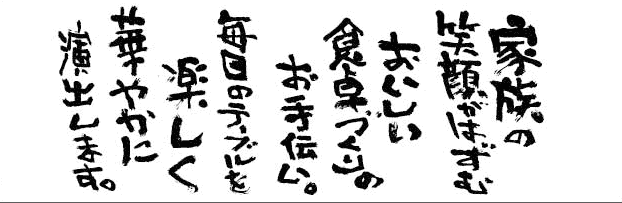 家族の
笑顔がはずむ
おいしい
食卓づくりの
お手伝い。
毎日のテーブルを
楽しく
華やかに
演出します。